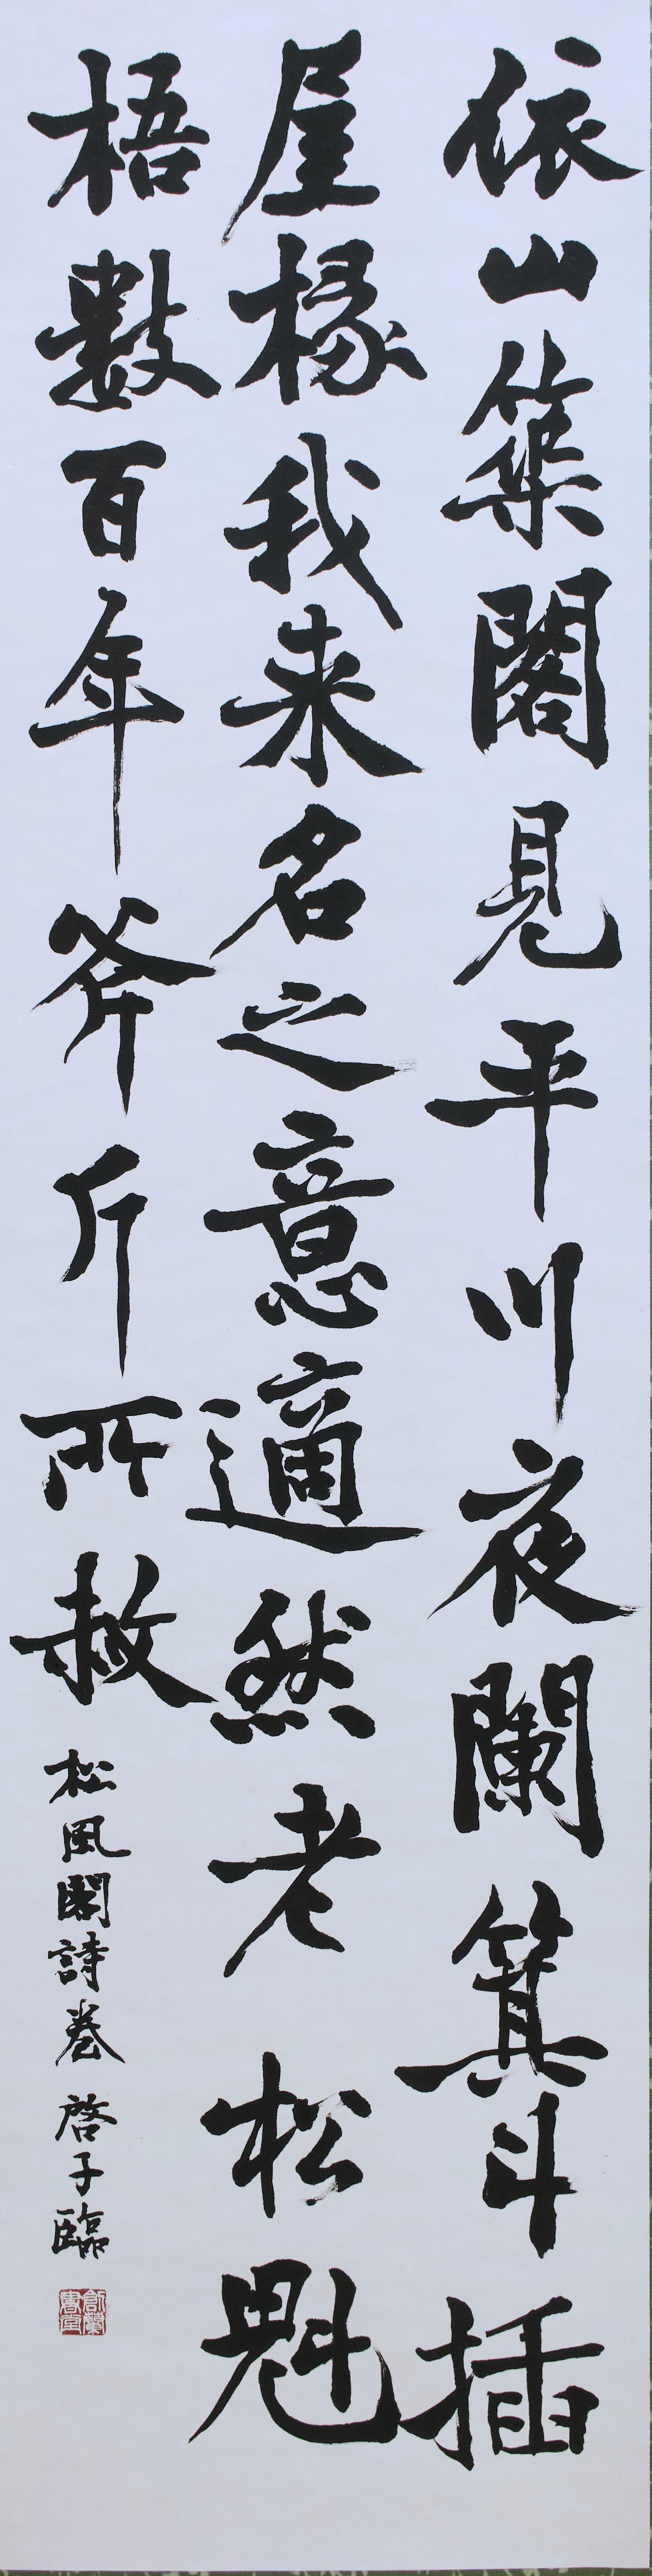 依山築閣見平川夜闌箕斗插
屋椽我来名之意適然老松魁
梧數百年斧斤所赦
松風閣詩巻 啓子臨